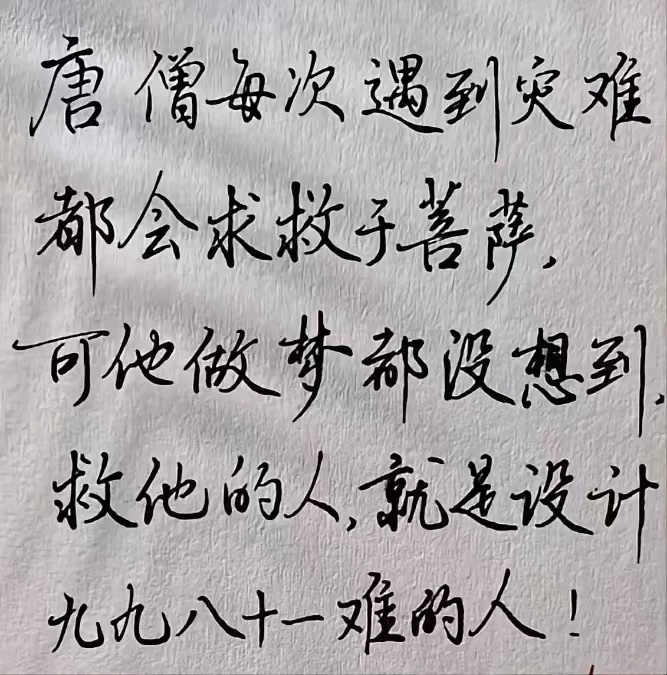 唐僧每次遇到灾难
都会求救于菩萨,
可他做梦都没想到,
救他的人,就是设计
九九八十一难的人!